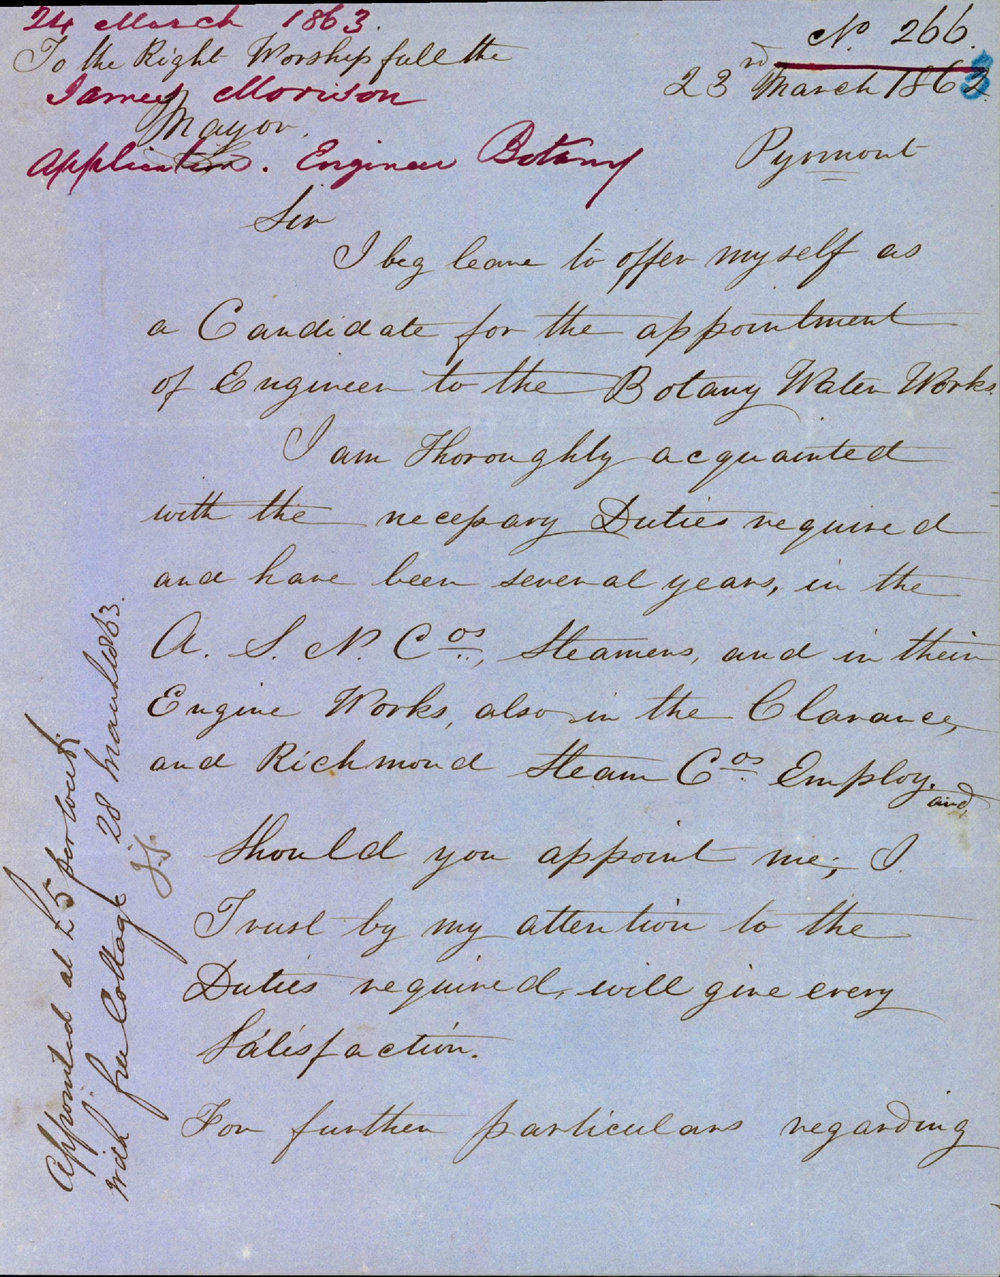 24 March 1863.
No. 266.
To the Right Worshipfull the
23rd March 1863
James Morison
Mayor.
Pyrmont
Application. Engineer Botany
Sir
I beg leave to offer myself as
a Candidate for the appointment
of Engineer to the Botany Water Works.
I am Thoroughly acquainted
with the necessary Duties required
and have been several years, in the
A. S. N. Cos, Steamers, and in their
Engine Works, also in the Clarance,
and Richmond Steam Cos Employ. and
Should you appoint me; I
Trust by my attention to the
Duties required, will give every
Satisfaction.
For further particulars regarding
Appointed at £5 per week
with free Cottage 28 March 1863.
J.S.